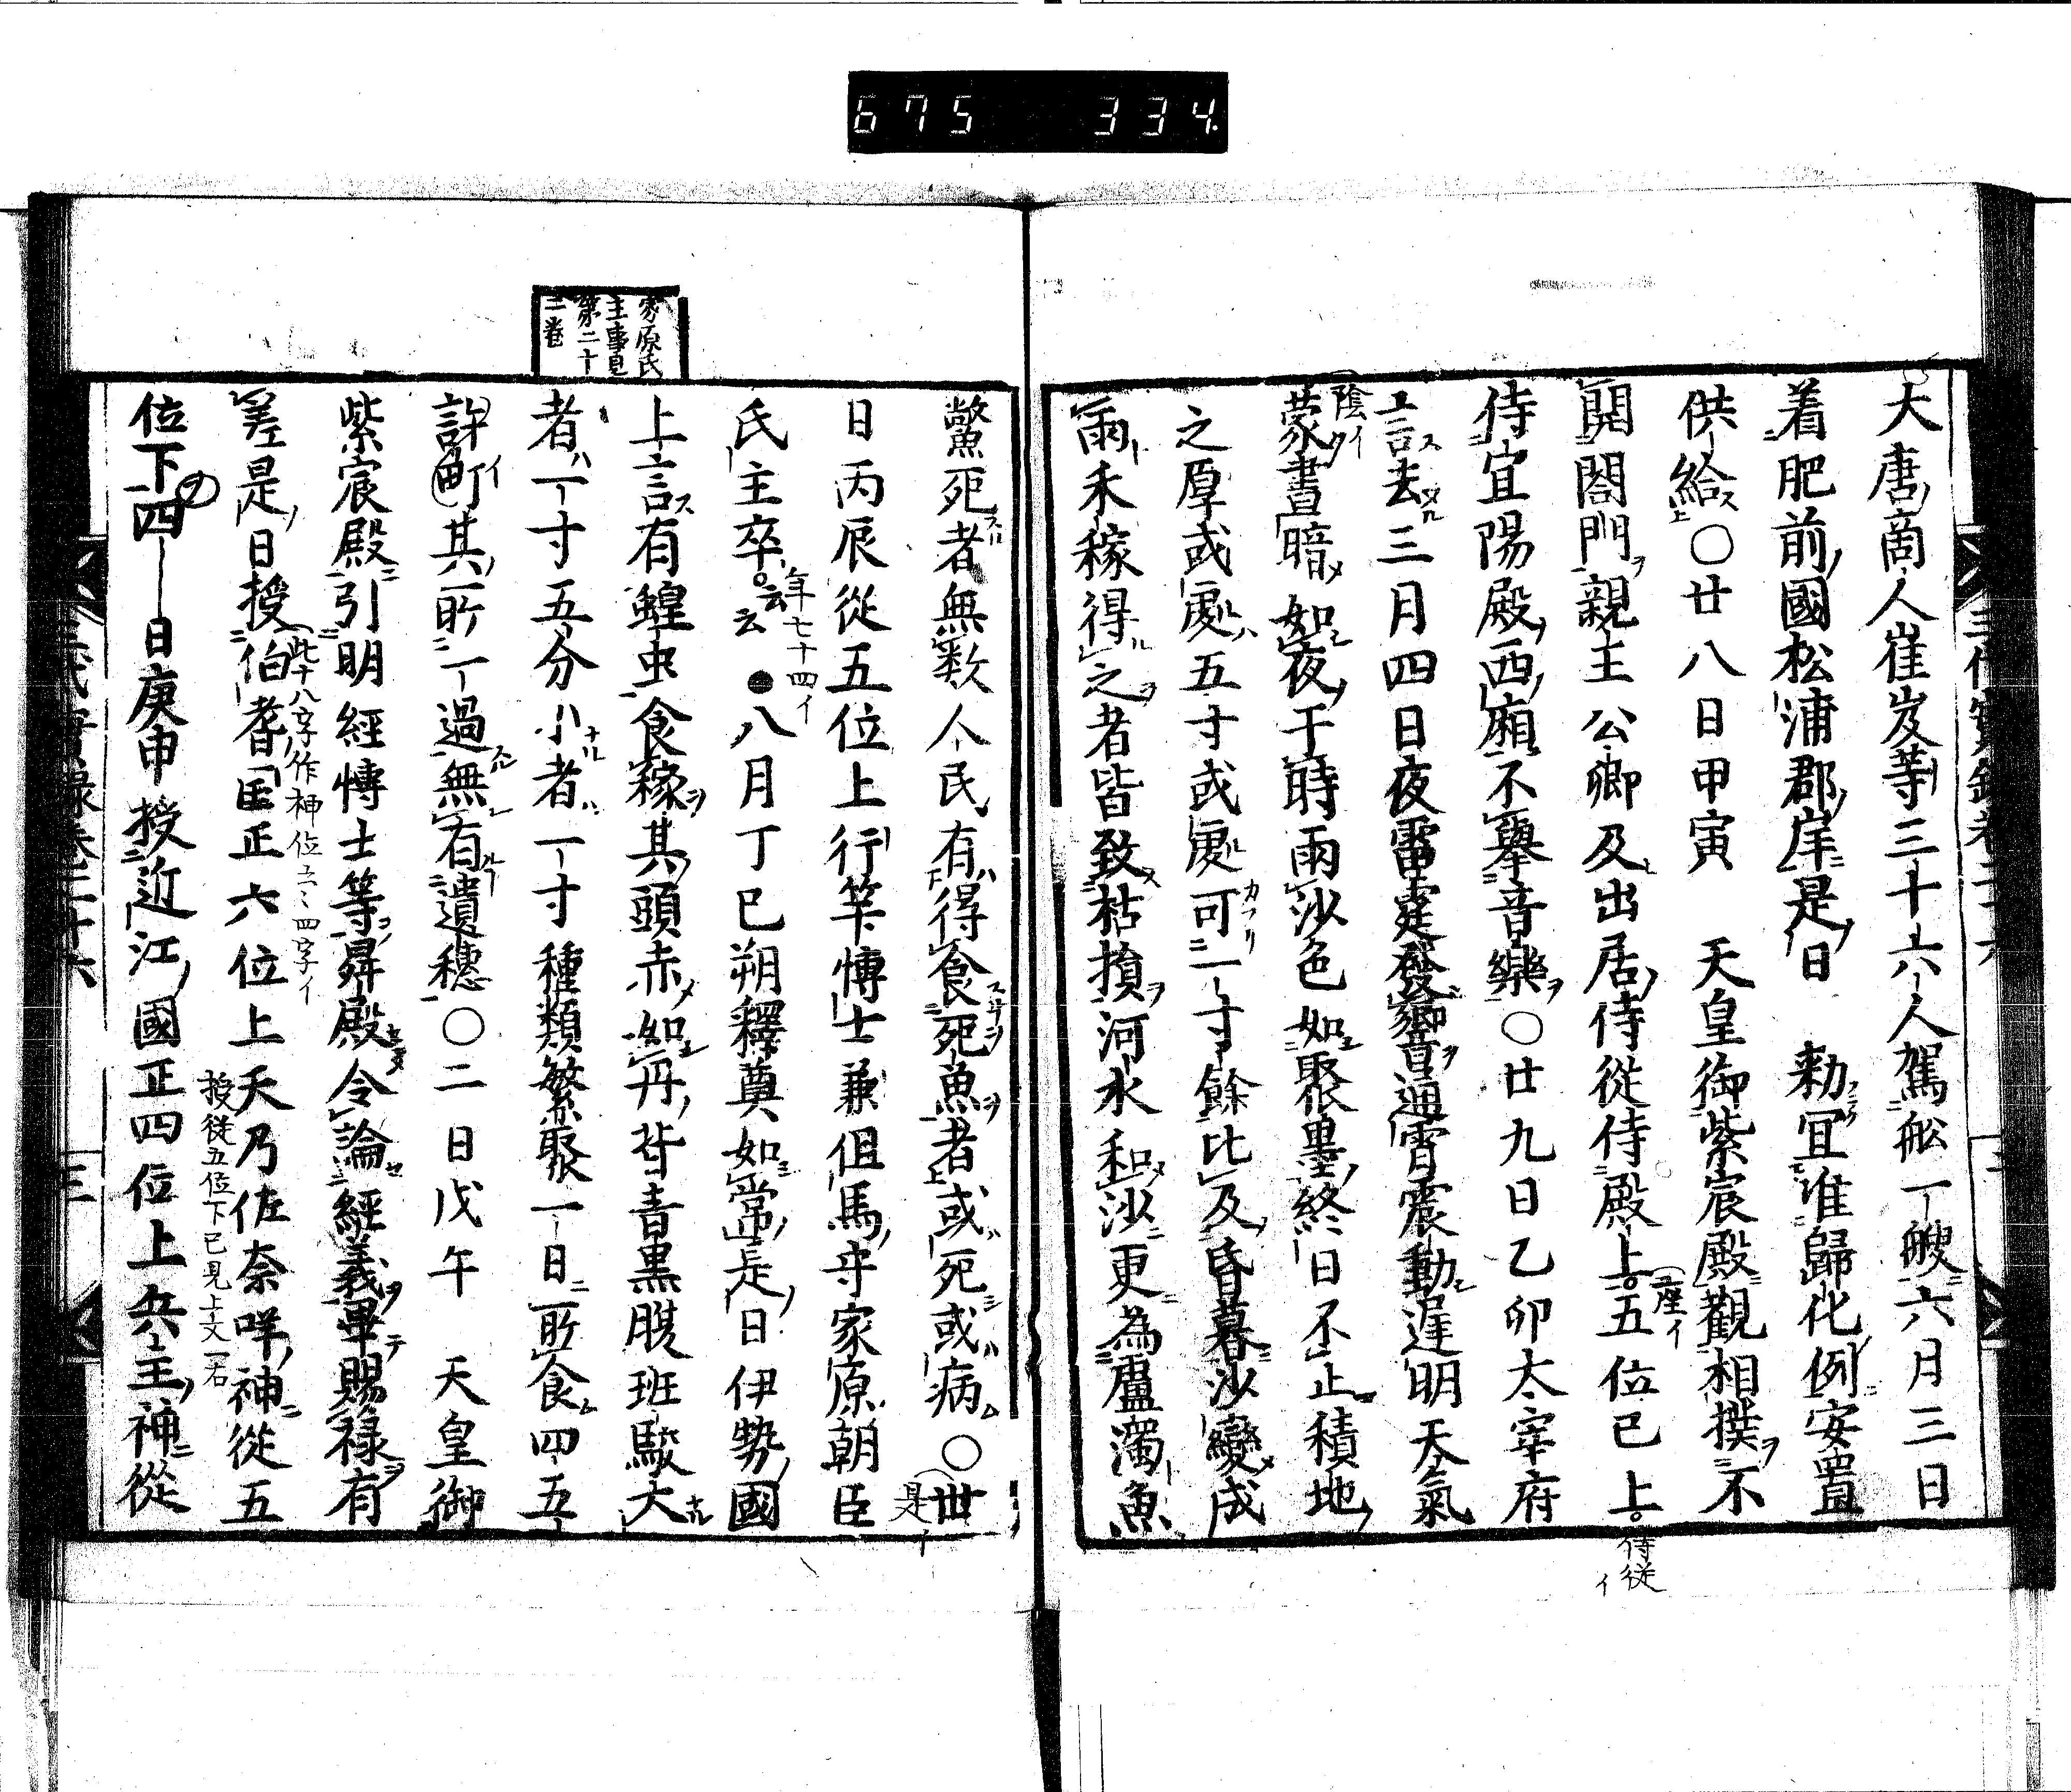 675 334.
大唐商人崔岌等三十六人駕舩一艘六月三日
着肥前國松浦郡岸是日 勅宜准歸化例安置
供給〇廿八日甲寅 天皇御紫宸殿觀相撲不
開閤門親王公卿及出居侍從侍殿上五位已上
侍宜陽殿西廂不擧音樂〇廿九日乙卯太宰府
上言去三月四日夜雷霆發響通宵震動遲明天氣
蒙晝暗如夜于時雨沙色如聚墨終日不止積地
之厚或處五寸或處可一寸餘比及昏暮沙變成
雨禾稼得之者皆致枯損河水和沙更為盧濁魚
鼈死者無數人民有得食死魚者或死或病〇卅
日丙辰從五位上行筭博士兼但馬守家原朝臣
氏主卒云云●八月丁巳朔釋奠如常是日伊勢國
上言有蝗虫食稼其頭赤如丹背青黒腹班駮大
者一寸五分小者一寸種類繁聚一日所食四五
許町其所一過無有遺穗〇二日戊午 天皇御
紫宸殿引明經博士等昇殿令論經義畢賜祿有
差是日授伯耆国正六位上天乃佐奈咩神從五
位下四日庚申授近江國正四位上兵主神從
家原氏
主事見
第二十
三卷
陰イ
座イ
侍従
イ
是イ
年七十四イ
此十八字作神位云々四字イ
授従五位下已見上文一右